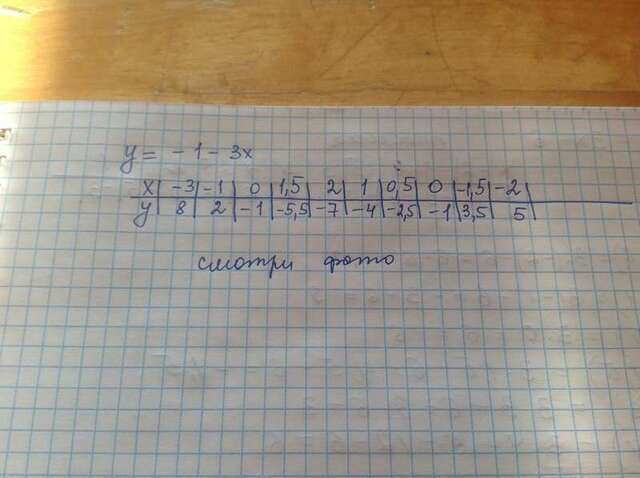 y = -1 - 3x
x | -3 | -1 | 0 | 1,5 | 2 | 1 | 0,5 | 0 | -1,5 | -2 |
y | 8 | 2 | -1 | -5,5 | -7 | -4 | -2,5 | -1 | 3,5 | 5 |
смотри фото